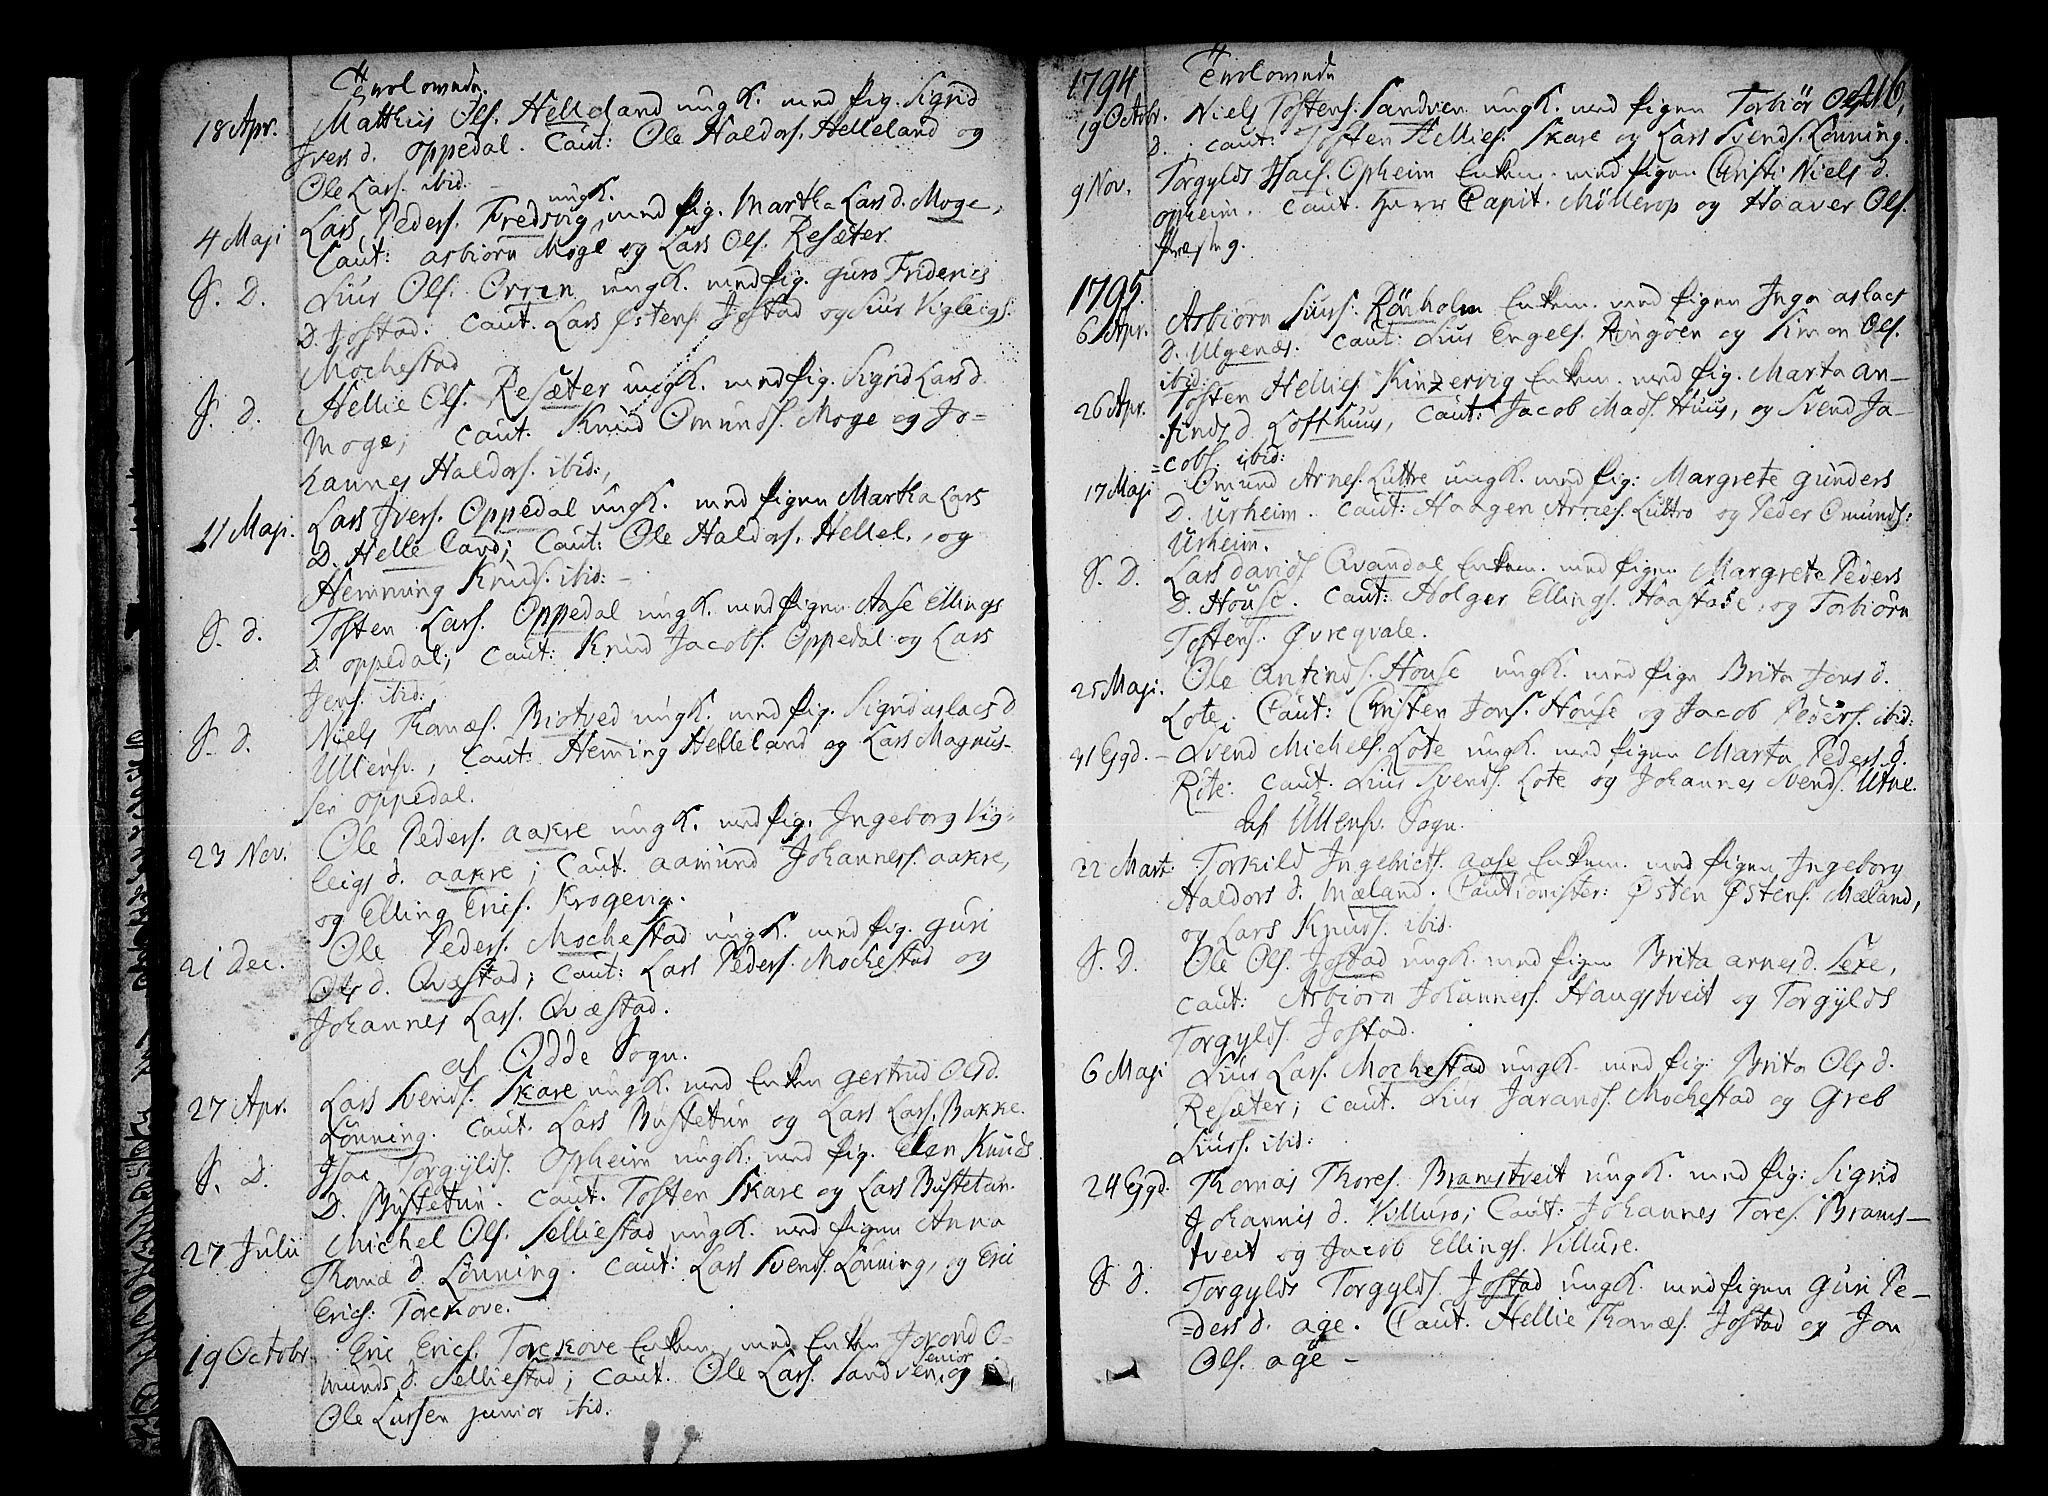 Trolovede.
18 Apr. Matthies Ols. Helleland ungk. med pig. Sigrid
Ivers d. Oppedal. Caut: Ole Haldors. Helleland og
Ole Lars. ibid.
4 Maji Lars Peders. Fredsvig ungk. med pig. Martha Lars d. Moge,
Caut: Asbiørn Moge og Lars Ols. Resæter.
S. D. Siur Ols. med pig. Guro
D. Jostad. Caut. Lars Østens. Jostad og Siur Vigleigs.
Mochestad
S. d. Hellie Ols. Resæter ungk. med pig. Sigrid Lars d.
Moge; Caut. Knud Omunds. Moge og Jo=
hannes Haldors. ibid:,
11 Maji. Lars Ivers. Oppedal ungk. med pigen Martha Lars
D. Helleland; Caut: Ole Haldors. Hellel., og
Hemming Knuds. ibid: –
S. d. Tosten Lars. Oppedal ungk. med pigen Aase Ellings
d. Oppedal; Caut: Knud Jacobs. Oppedal og Lars
Jens. ibid:
S. d. Niels Thomæs. Biotved ungk. med pig. Sigrid Aslacs d
Ullensv., Caut: Heming Helleland og Lars Magnus-
sen Oppedal.
23 Nov. Ole Peders. Aakre ungk. med pig. Ingeborg Vig=
leigs d. Aakre; Caut. Aamund Johanness. Aakre,
og Elling Erics. Krogevig.
21 Dec. Ole Peders. Mochestad ungk. med pig. Guri
Ols d. Qvæstad; Caut: Lars Peders. Mochestad og
Johannes Lars. Qvæstad.
af Odde Sogn.
27 Apr. Lars Svends. Skare ungk. med Enken Gertrud Ols d.
Lønning. Caut. Lars Bustetun og Lars Lars. Bakke.
S. D. Isac Torgylds. Opheim ungk. med pig. Elen Knuds
D. Bustetun. Caut. Tosten Skare og Lars Bustetun.
27 Julii Michel Ols. Selliestad ungk. med pigen Anna
Thomæ d. Lønning. Caut: Lars Svends. Lønning, og Eric
Erics: Torekove.
19 Octobr. Eric Erics. Torekove Enkem. med Enken O=
munds d. Selliestad; Caut. Ole Lars. Sandven senior, og
Ole Larsen junior ibid.
1794 Trolovede 216.
19 Octobr. Niels Tostens. Sandven ungk. med pigen Torbiør Ols
D. Caut: Tosten Hellies. Skare og Lars Svends. Lønning.
9 Nov. Torgylds Isacs. Opheim Enkem. med pigen Christi Niels d.
Opheim. Caut. Herr Capit. Möllerop og Haaver Ols.
1795.
6 Apr. Asbiørn Siurs. Rönholm Enkem. med pigen Inga Aslacs
D. Ulgenæs: Caut: Siur Engels. Ringöen og Simon Ols.
ibid:
26 Apr. Tosten Hellies. Kinzervig Enkem. med pig. Marta An–
finds d. Lofthuus, Caut: Jacob Mads. Huus, og Svend Ja–
=cobs. ibid:
17 Maji Omund Arnes. Luttre ungk. med pig: Margrete Gunders
D. Urheim. Caut: Haagen Arnes. Luttro og Peder Omunds:
Urheim.
S. D. Lars Davids. Qvandal Enkem. med pigen Margrete Peders
D. House. Caut: Holger Ellings. Haastabe, og Torbiørn
Tostens. Øvreqvale.
25 Maji. Ole Anfinds. House ungk. med pige Brita Jons d.
Lote, Caut: Christen Jons. House og Jacob Peders. ibid:
31 Ejsd. – Svend Michels. Lote ungk. med pigen Marta Peders d.
Rote: Caut: Siur Svends. Lote og Johannes Svends. Utne.
af Ullensv. Sogn.
22 Mart. Torkild Ingebricts. Aase Enkem. med pigen Ingeborg
Haldors d. Mæland. Cautionister: Østen Østens. Mæland,
og Lars Knuds. ibid.
S. D. Ole Ols. Jostad ungk. med pigen Brita Arnes d. Sexe,
Caut: Asbiørn Johannes. Haugstveit og Torgylds
Torgylds. Jostad.
6 Maji Siur Lars. Mochestad ungk. med pig: Brita Ols d.
Resæter; Caut. Siur Jarands. Mochestad og Greb
Siurs. ibid:
24 Ejsd. Thomas Thores. Bramstveit ungk. med pig: Sigrid
Johannis d. Villure; Caut: Johannes Tores. Brams–
tveit og Jacob Ellings. Villure.
S d. Torgylds Torgylds. Jostad ungk. med pigen Guri Pe–
=ders d. Age. Caut. Hellie Thomæs. Jostad og Jon
Ols. Age –